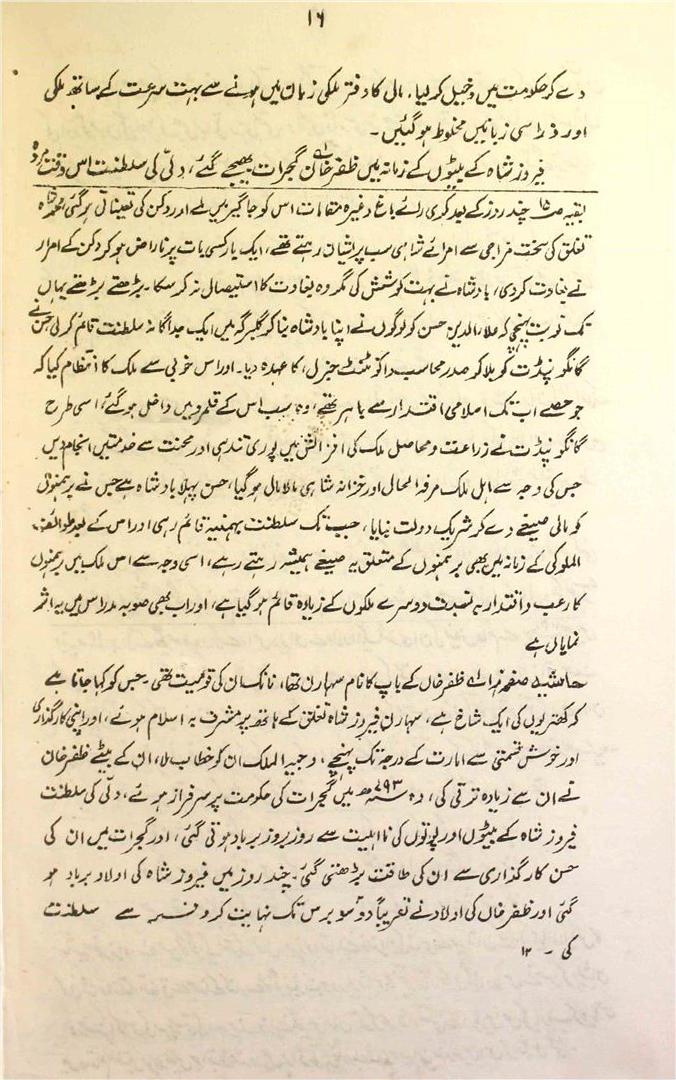 ۱۶
دے کر حکومت میں دخیل کر لیا۔ مالی کا دفتر ملکی زبان میں ہونے سے بہت سرعت کے ساتھ ملکی
اور دراسی زبانیں مخلوط ہو گئیں۔
فیروز شاہ کے بیٹوں کے زمانہ میں ظفر خاں گجرات بھیجے گئے، دلّی کی سلطنت اس وقت مردہ
بقیہ ص۱۵ چند روز کے بعد کری رائے باغ وغیرہ مقامات اس کو جاگیر میں ملے اور دکن کی تعیناتی ہو گئی محمد شاہ
تغلق کی سخت مزاجی سے امرائے شاہی سب پریشان رہتے تھے، ایک بار کسی بات پر ناراض ہو کر دکن کے امرار
نے بغاوت کر دی، بادشاہ نے بہت کوشش کی مگر وہ بغاوت کا استیصال نہ کر سکا۔ بڑھتے بڑھتے یہاں
تک نوبت پہنچی کہ علاء الدین حسن کو لوگوں نے اپنا بادشاہ بنا کر گلبرگہ میں ایک جداگانہ سلطنت قائم کر لی حسن نے
گانگو پنڈت کو بلا کر صدر محاسب داکونٹنٹ جنرل، کا عہدہ دیا۔ اور اس خوبی سے ملک کا انتظام کیا کہ
جو حصے اب تک اسلامی اقتدار سے باہر تھے، وہ سب اس کے قلمرو میں داخل ہو گئے، اسی طرح
گانگو پنڈت نے زراعت و محاصل ملک کی افزائش میں پوری تندہی اور محنت سے خدمتیں انجام دیں
جس کی وجہ سے اہل ملک مرفہ الحالی اور خزانہ شاہی مالا مالی ہو گیا، حسن پہلا بادشاہ ہے جس نے برہمنوں
کو مالی صیغے دے کر شریک دولت بنایا، جب تک سلطنت بہمنیہ قائم رہی اور اس کے بعد طوائف
الملوکی کے زمانہ میں بھی برہمنوں کے متعلق یہ صیغے ہمیشہ رہتے رہے، اسی وجہ سے اس ملک میں برہمنوں
کا رعب و اقتدار بہ نسبت دوسرے ملکوں کے زیادہ قائم ہو گیا ہے، اور اب بھی صوبہ مدراس میں یہ اثر
نمایاں ہے
حاشیہ صفحہ ہذا لے ظفر خاں کے باپ کا نام سہارن تھا، ٹانک ان کی قومیت تھی۔ جس کو کہا جاتا ہے
کہ کھتریوں کی ایک شاخ ہے، سہارن فیروز شاہ تغلق کے ہاتھ پر مشرف بہ اسلام ہوئے، اور اپنی کارگذاری
اور خوش قسمتی سے امارت کے درجہ تک پہنچے، وجیہ الملک ان کو خطاب ملا، ان کے بیٹے ظفر خان
نے ان سے زیادہ ترقی کی، وہ ۷۹۳ھ میں گجرات کی حکومت پر سرفراز ہوئے، دلّی کی سلطنت
فیروز شاہ کے بیٹوں اور پوتوں کی نااہلیت سے روز بروز برباد ہوتی گئی، اور گجرات میں ان کی
حسن کارگذاری سے ان کی طاقت بڑھتی گئی۔ چند روز میں فیروز شاہ کی اولاد برباد ہو
گئی اور ظفر خاں کی اولاد نے تقریباً دو سو برس تک نہایت کر و فر سے سلطنت
کی - ۱۲